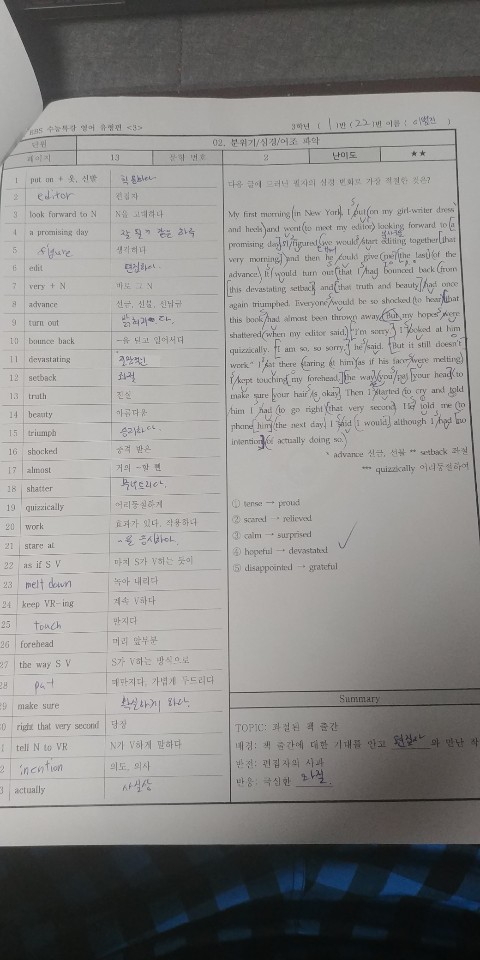 EBS 수능특강 영어 유형편 <3>
3학년 ( 1 )반 ( 22 )번 이름 (
단원 02. 분위기/심경/어조 파악
페이지 13 문항 번호 2 난이도 ★★
1 put on + 옷, 신발 착용하다
2 editor 편집자
3 look forward to N N을 고대하다
4 a promising day
5 figure 생각하다
6 edit 편집하다
7 very + N 바로 그 N
8 advance 선금, 선불, 선납금
9 turn out 밝혀지다.
10 bounce back ~을 딛고 일어서다
11 devastating
12 setback 좌절
13 truth 진실
14 beauty 아름다움
15 triumph 승리하다
16 shocked 충격 받은
17 almost 거의 ~할 뻔
18 shatter 부서뜨리다.
19 quizzically 어리둥절하게
20 work 효과가 있다, 작용하다
21 stare at ~을 응시하다.
22 as if S V 마치 S가 V하는 듯이
23 melt down 녹아 내리다
24 keep VR-ing 계속 V하다
25 touch 만지다
26 forehead 머리 앞부분
27 the way S V S가 V하는 방식으로
28 pat 매만지다, 가볍게 두드리다
29 make sure 확실하게 하다.
30 right that very second 당장
31 tell N to VR N가 V하게 말하다
32 intention 의도, 의사
33 actually 사실상
다음 글에 드러난 필자의 심경 변화로 가장 적절한 것은?
My first morning in New York, I put on my girl-writer dress
and heels and went to meet my editor, looking forward to a
promising day. I figured we would start editing together that
very morning, and then he could give me the last of the
advance. It would turn out that I had bounced back from
this devastating setback and that truth and beauty had once
again triumphed. Everyone would be so shocked to hear that
this book had almost been thrown away. But my hopes were
shattered when my editor said, "I'm sorry." I looked at him
quizzically. "I am so, so sorry," he said. "But it still doesn't
work." I sat there staring at him as if his face were melting.
I kept touching my forehead, the way you pat your head to
make sure your hair is okay. Then I started to cry and told
him I had to go right that very second. He told me to
phone him the next day. I said I would, although I had no
intention of actually doing so.
* advance 선금, 선불 ** setback 좌절
*** quizzically 어리둥절하여
① tense → proud
② scared → relieved
③ calm → surprised
④ hopeful → devastated
⑤ disappointed → grateful
Summary
TOPIC: 좌절된 책 출간
배경: 책 출간에 대한 기대를 안고 편집자 와 만난 작
반전: 편집자의 사과
반응: 극심한 좌절.